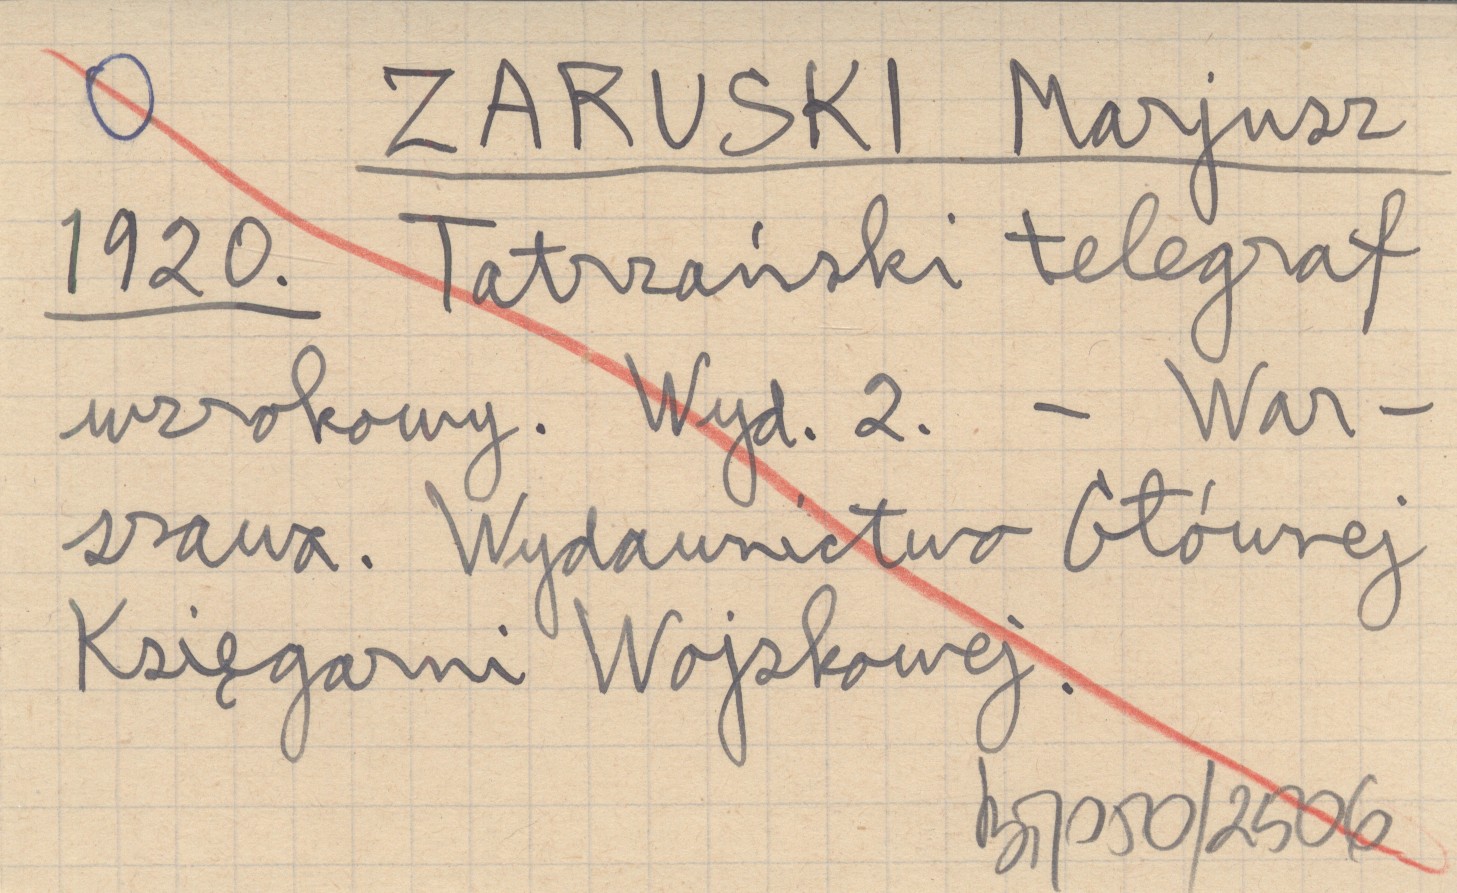 ZARUSKI Marjusz
1920. Tatrzański telegraf
wzrokowy. Wyd. 2. - War-
szawa. Wydawnictwo Głównej
Księgarni Wojskowej.
050/2506